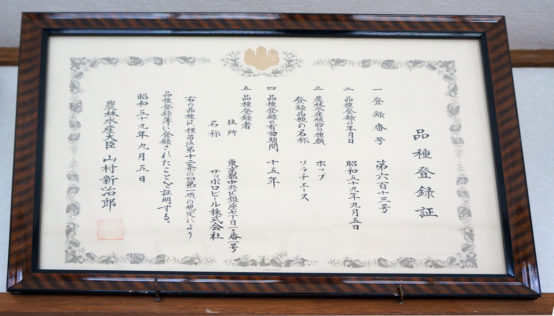 品種登録証
一 登録番号 第六百十三号
二 品種登録の年月日 昭和五十九年九月五日
三 農林水産植物の種類 ホップ
登録品種の名称 ソラチエース
四 品種登録の有効期間 十五年
五 品種登録者
住所 東京都中央区銀座七丁目一番一号
名称 サッポロビール株式会社
右の品種は、種苗法第十二条の四第一項の規定により
品種登録簿に登録されたことを証明する。
昭和五十九年九月五日
農林水産大臣 山村新治郎